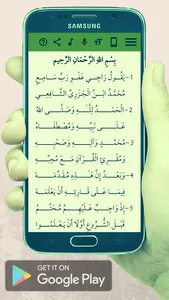 بِسْمِ اللهِ الرَّحْمَانِ الرَّحِيمِ
1- يَقُولُ رَاجِي عَفْوِ رَبٍّ سَامِعِ
مُحَمَّدُ ابْنُ الْجَزَرِيِّ الشَّافِعِي
2- الْحَمْدُ لِلَّهِ وَصَلَّى اللهُ
عَلَى نَبِيِّهِ وَمُصْطَفَاهُ
3- مُحَمَّدٍ وَآلِهِ وَصَحْبِهِ
وَمُقْرِئِ الْقُرْآنِ مَعْ مُحِبِّهِ
4- وَبَعْدُ إِنَّ هَذِهِ مُقَدِّمَهْ
فِيمَا عَلَى قَارِئِهِ أَنْ يَعْلَمَهْ
5- إِذْ وَاجِبٌ عَلَيْهِمُ مُحَتَّمُ
قَبْلَ الشُّرُوعِ أَوَّلاً أَنْ يَعْلَمُوا
GET IT ON
Google Play